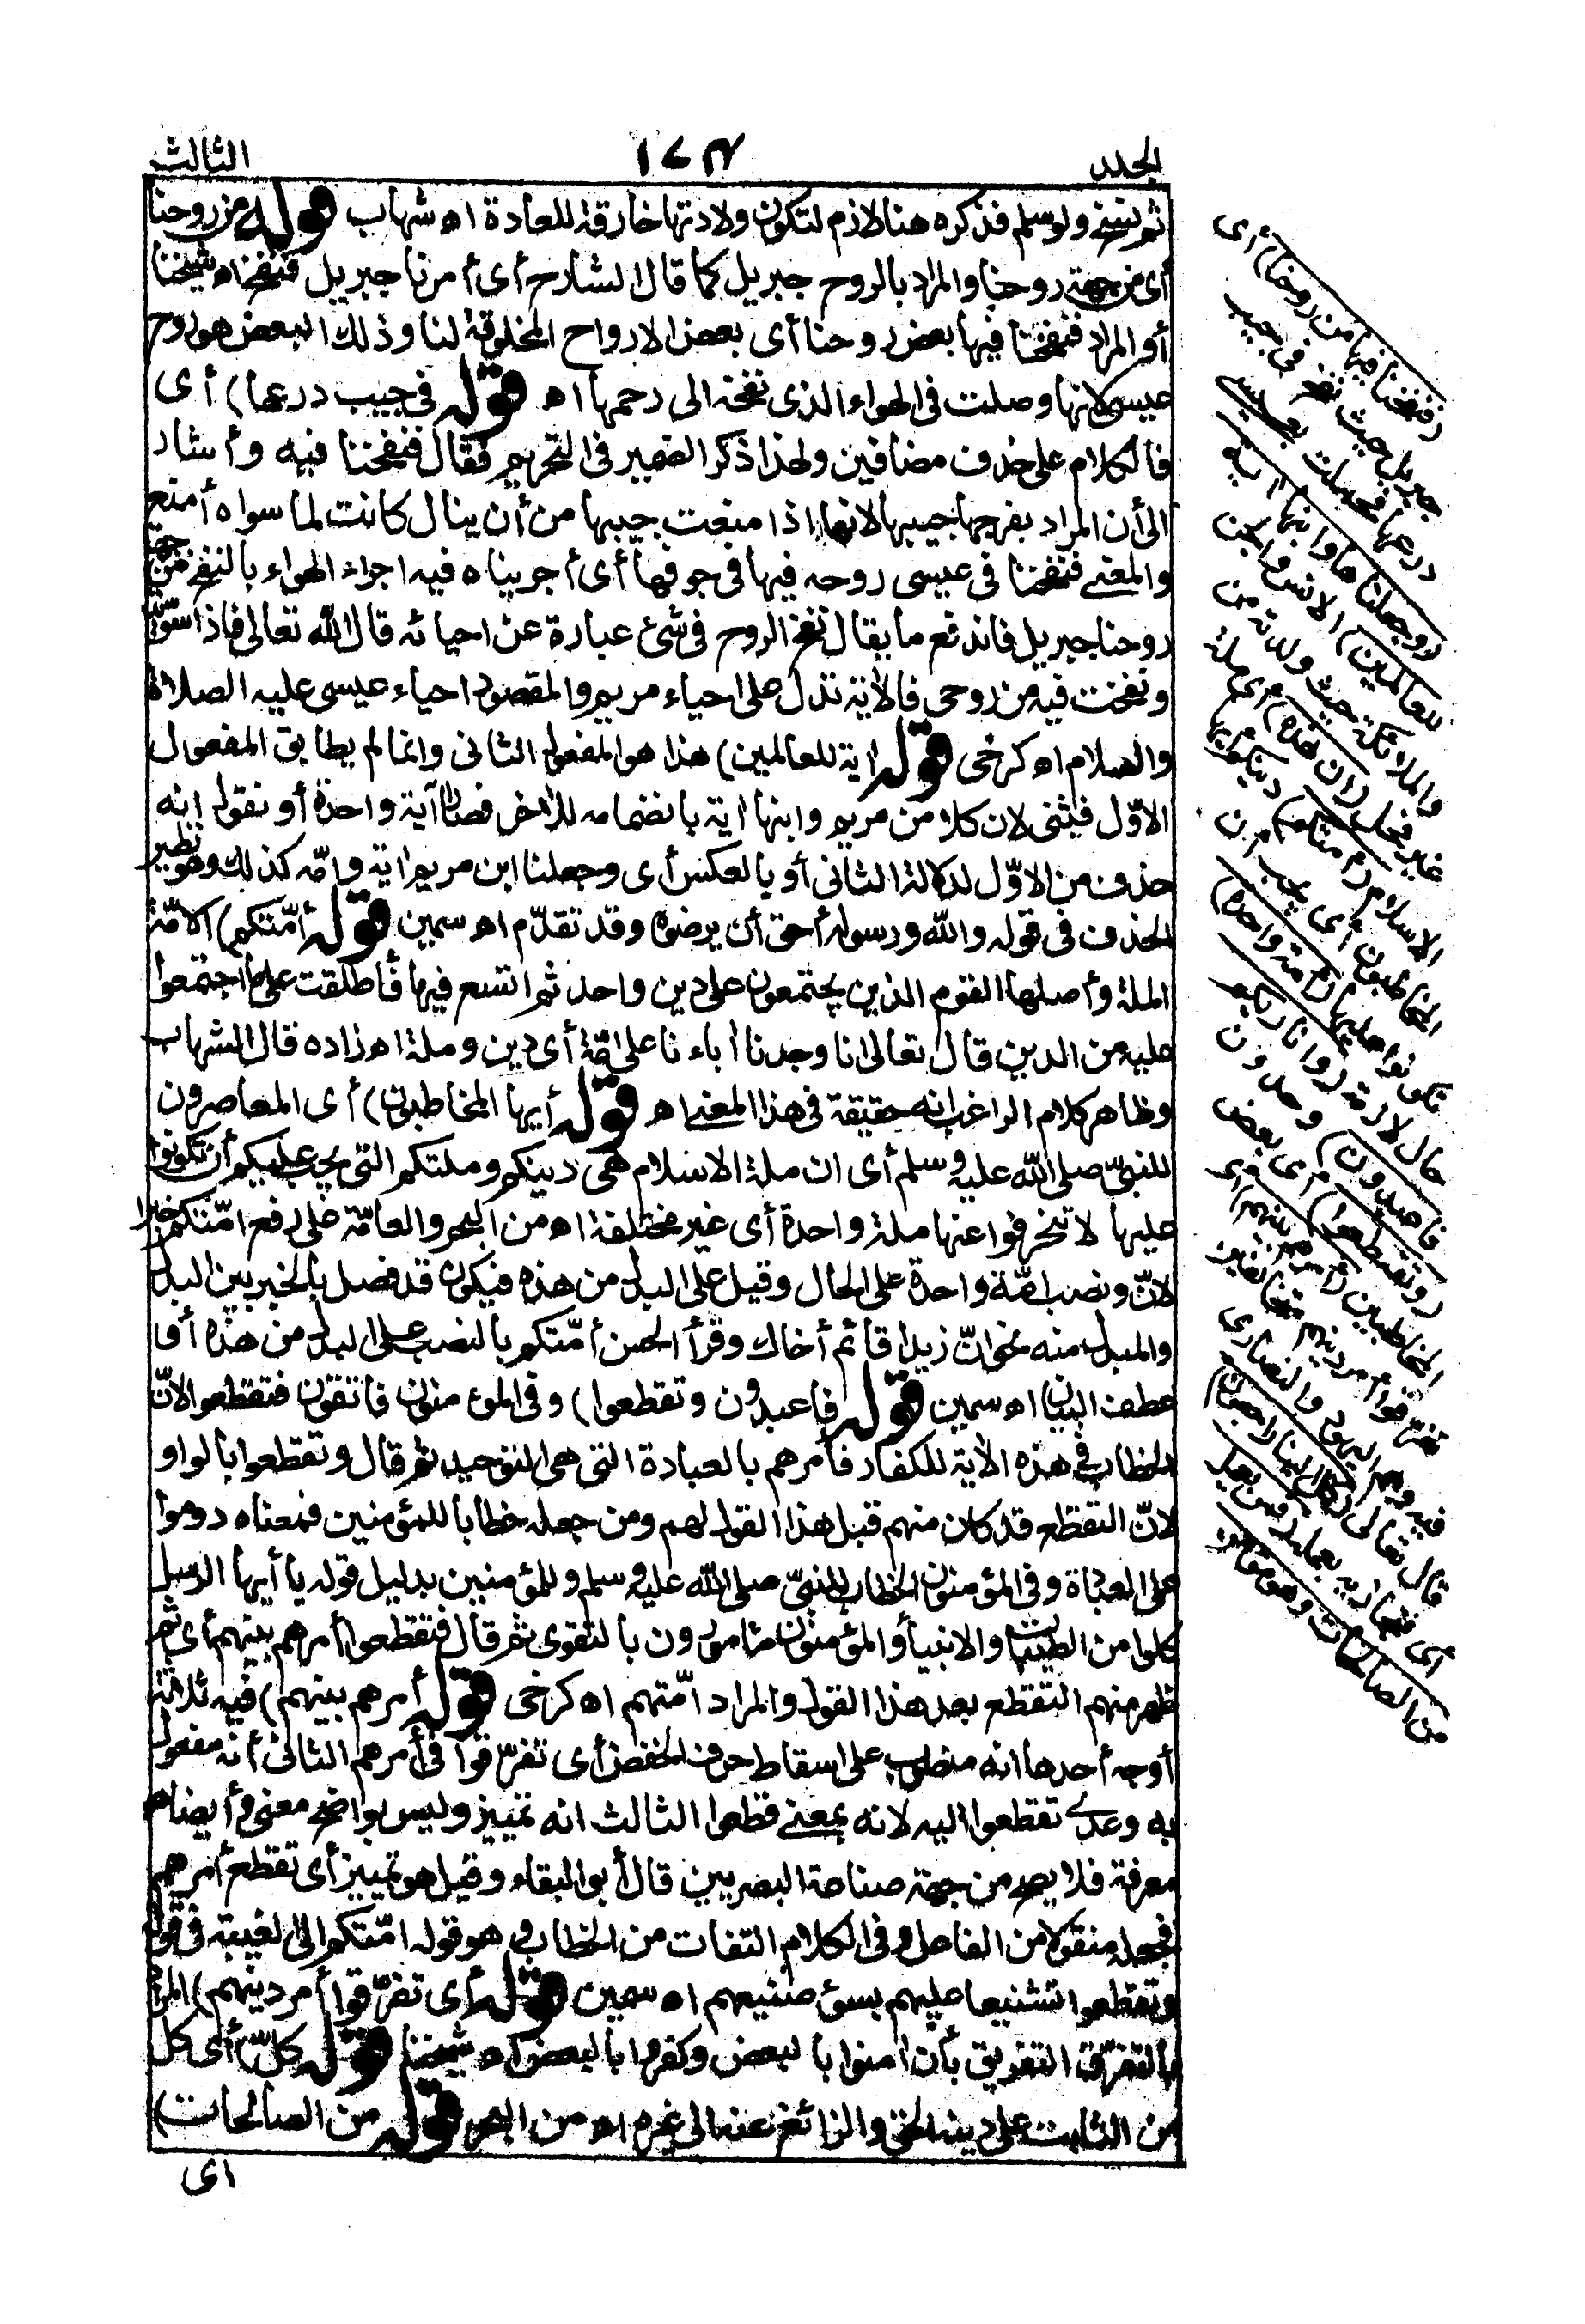 الجلد
١٧٣
الثالث
ثم ينسخ ولو سلم فذكره هنا لازم لتكون ولادتها خارقة للعادة اه شهاب قوله من روحنا
أى من جهة روحنا والمراد بالروح جبريل كما قال الشارح أى أمرنا جبريل فنفخ اه شيخنا
أو المراد فنفخنا فيها بعض روحنا أى بعض الارواح المخلوقة لنا وذلك البعض هو روح
عيسى لانها وصلت فى الهواء الذى نفخه الى رحمها اه قوله فى جيب درعها) أى
فالكلام على حذف مضافين ولهذا ذكر الضمير فى التحريم فقال فنفخنا فيه وأشار
الى أن المراد بفرجها جيبها لانها اذا منعت جيبها من أن ينال كانت لما سواه أمنع
والمعنى فنفخنا فى عيسى روحه فيها فى جوفها أى أجريناه فيه اجراء الهواء بالنفخ من جهة
روحنا جبريل فاندفع ما يقال نفخ الروح فى شئ عبارة عن احيائه قال الله تعالى فاذا سوّيته
ونفخت فيه من روحى فالآية تدل على احياء مريم والمقصود احياء عيسى عليه الصلاة
والسلام اه كرخى قوله اية للعالمين) هذا هو المفعول الثانى وانما لم يطابق المفعول
الاوّل فيثنى لان كلا من مريم وابنها اية بانضمامه للآخر فصارا آية واحدة أو نقول انه
حذف من الاوّل لدلالة الثانى أو بالعكس أى وجعلنا ابن مريم اية وامّه كذلك وهو نظير
الحذف فى قوله والله ورسوله أحق أن يرضوه وقد تقدّم اه سمين قوله أمّتكم) الامّة
الملة وأصلها القوم الذين يجتمعون على دين واحد ثم اتسع فيها فأطلقت على ما اجتمعوا
عليه من الدين قال تعالى انا وجدنا اباءنا على امّة أى دين وملة اه زاده قال الشهاب
وظاهر كلام الراغب انه حقيقة فى هذا المعنى اه قوله أيها المخاطبون) أى المعاصرون
للنبىّ صلى الله عليه وسلم أى ان ملة الاسلام هى دينكم وملتكم التى يجب عليكم أن تكونوا
عليها لا تنحرفوا عنها ملة واحدة أى غير مختلفة اه من البحر والعامّة على رفع امّتكم خبرا
لانّ ونصب امّة واحدة على الحال وقيل على البدل من هذه فيكون قد فصل بالخبر بين البدل
والمبدل منه نحو انّ زيدا قائم أخاك وقرأ الحسن أمّتكم بالنصب على البدل من هذه أو
عطف البيان اه سمين قوله فاعبدون وتقطعوا) وفى المؤمنون فاتقون فتقطعوا لانّ
الخطاب فى هذه الآية للكفار فأمرهم بالعبادة التى هى التوحيد ثم قال وتقطعوا بالواو
لانّ التقطع قد كان منهم قبل هذا القول لهم ومن جعله خطابا للمؤمنين فمعناه دوموا
على العبادة وفى المؤمنون الخطاب للنبىّ صلى الله عليه وسلم وللمؤمنين بدليل قوله يا أيها الرسل
كلوا من الطيبات والانبياء والمؤمنون مأمورون بالتقوى ثم قال فتقطعوا أمرهم بينهم أى ثم
ظهر منهم التقطع بعد هذا القول والمراد امّتهم اه كرخى قوله أمرهم بينهم) فيه ثلاثة
أوجه أحدها انه منصوب على اسقاط حرف الخفض أى تفرّقوا فى أمرهم الثانى أنه مفعول
به وعدى تقطعوا اليه لانه بمعنى قطعوا الثالث انه تمييز وليس بواضح معنى وأيضا هو
معرفة فلا يصح من جهة صناعة البصريين قال أبو البقاء وقيل هو تمييز أى تقطع أمرهم
فجعله منقولا من الفاعل وفى الكلام التفات من الخطاب وهو قوله امّتكم الى الغيبة فى قوله
وتقطعوا تشنيعا عليهم بسوء صنيعهم اه سمين قوله أى تفرّقوا أمر دينهم) المراد
بالتفرّق التفريق بأن امنوا بالبعض وكفروا بالبعض اه شيخنا قوله كلّ) أى كل
من الثابت على دينه الحق والزائغ عنه الى غيره اه من البحر قوله من الصالحات)
اى
(فنفخنا فيها من روحنا) أى
جبريل حيث نفخ فى جيب
درعها فحملت بعيسى
(وجعلناها وابنها اية
للعالمين) الانس والجن
والملائكة حيث ولدته من
غير فحل (ان هذه) أى ملة
الاسلام (امتكم) دينكم أيها
المخاطبون أى يجب أن
تكونوا عليها (امة واحدة)
حال لازمة (وانا ربكم
فاعبدون) وحدون
(وتقطعوا) أى بعض
المخاطبين (أمرهم بينهم) أى
تفرقوا أمر دينهم متخالفين
فيه وهم اليهود والنصارى
قال تعالى (كل الينا راجعون)
أى فنجازيه بعمله (فمن يعمل
من الصالحات وهو مؤمن